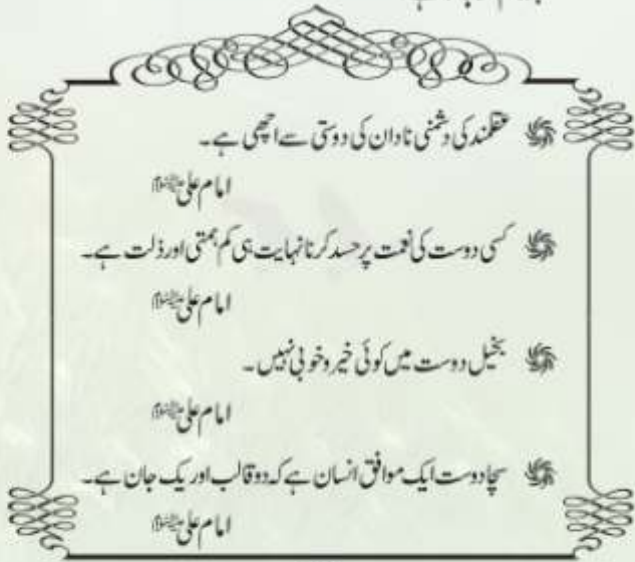 عقلمند کی دشمنی نادان کی دوستی سے اچھی ہے۔
امام علی علیہ السلام
کسی دوست کی نعمت پر حسد کرنا نہایت ہی کم ہمتی اور ذلت ہے۔
امام علی علیہ السلام
بخیل دوست میں کوئی خیر و خوبی نہیں۔
امام علی علیہ السلام
سچا دوست ایک موافق انسان ہے کہ دو قالب اور یک جان ہے۔
امام علی علیہ السلام